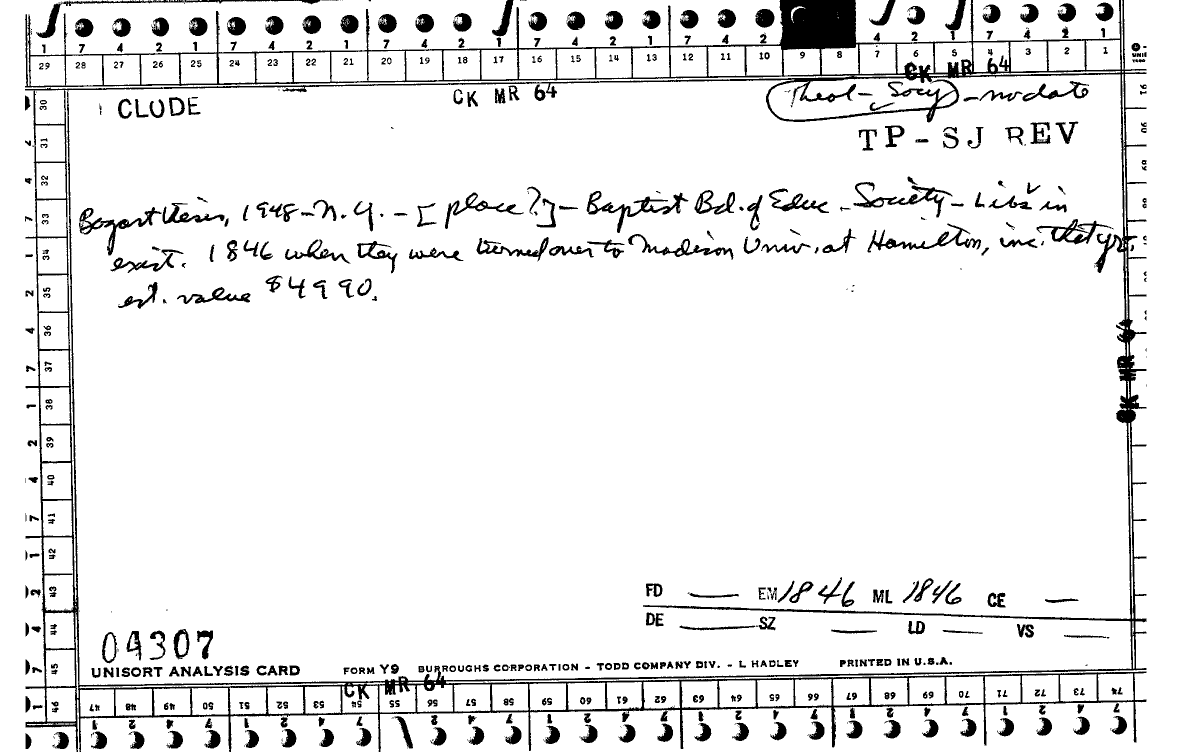 1 7 4 2 1 7 4 2 1 7 4 2 1 7 4 2 1 7 4 2 4 2 1 7 4 2 1
29 28 27 26 25 24 23 22 21 20 19 18 17 16 15 14 13 12 11 10 9 8 7 6 5 4 3 2 1
CK MR 64
CLUDE
CK MR 64
Theol- Socy - no date
TP - SJ REV
Bogart thesis, 1948 - N.Y. - [place?] - Baptist Bd. of Educ - Society - Libs in
exist. 1846 when they were turned over to Madison Univ. at Hamilton, inc. that yr.
est. value $4990.
30
31
32
33
34
35
36
37
38
39
40
41
42
43
44
45
46
CK MR 64
FD EM 1846 ML 1846 CE
DE SZ LD VS
04307
UNISORT ANALYSIS CARD FORM Y9 BURROUGHS CORPORATION - TODD COMPANY DIV. - L HADLEY PRINTED IN U.S.A.
CK MR 64
47 48 49 50 51 52 53 54 55 56 57 58 59 60 61 62 63 64 65 66 67 68 69 70 71 72 73 74
1 2 4 7 1 2 4 7 2 4 7 1 2 4 7 1 2 4 7 1 2 4 7 1 2 4 7